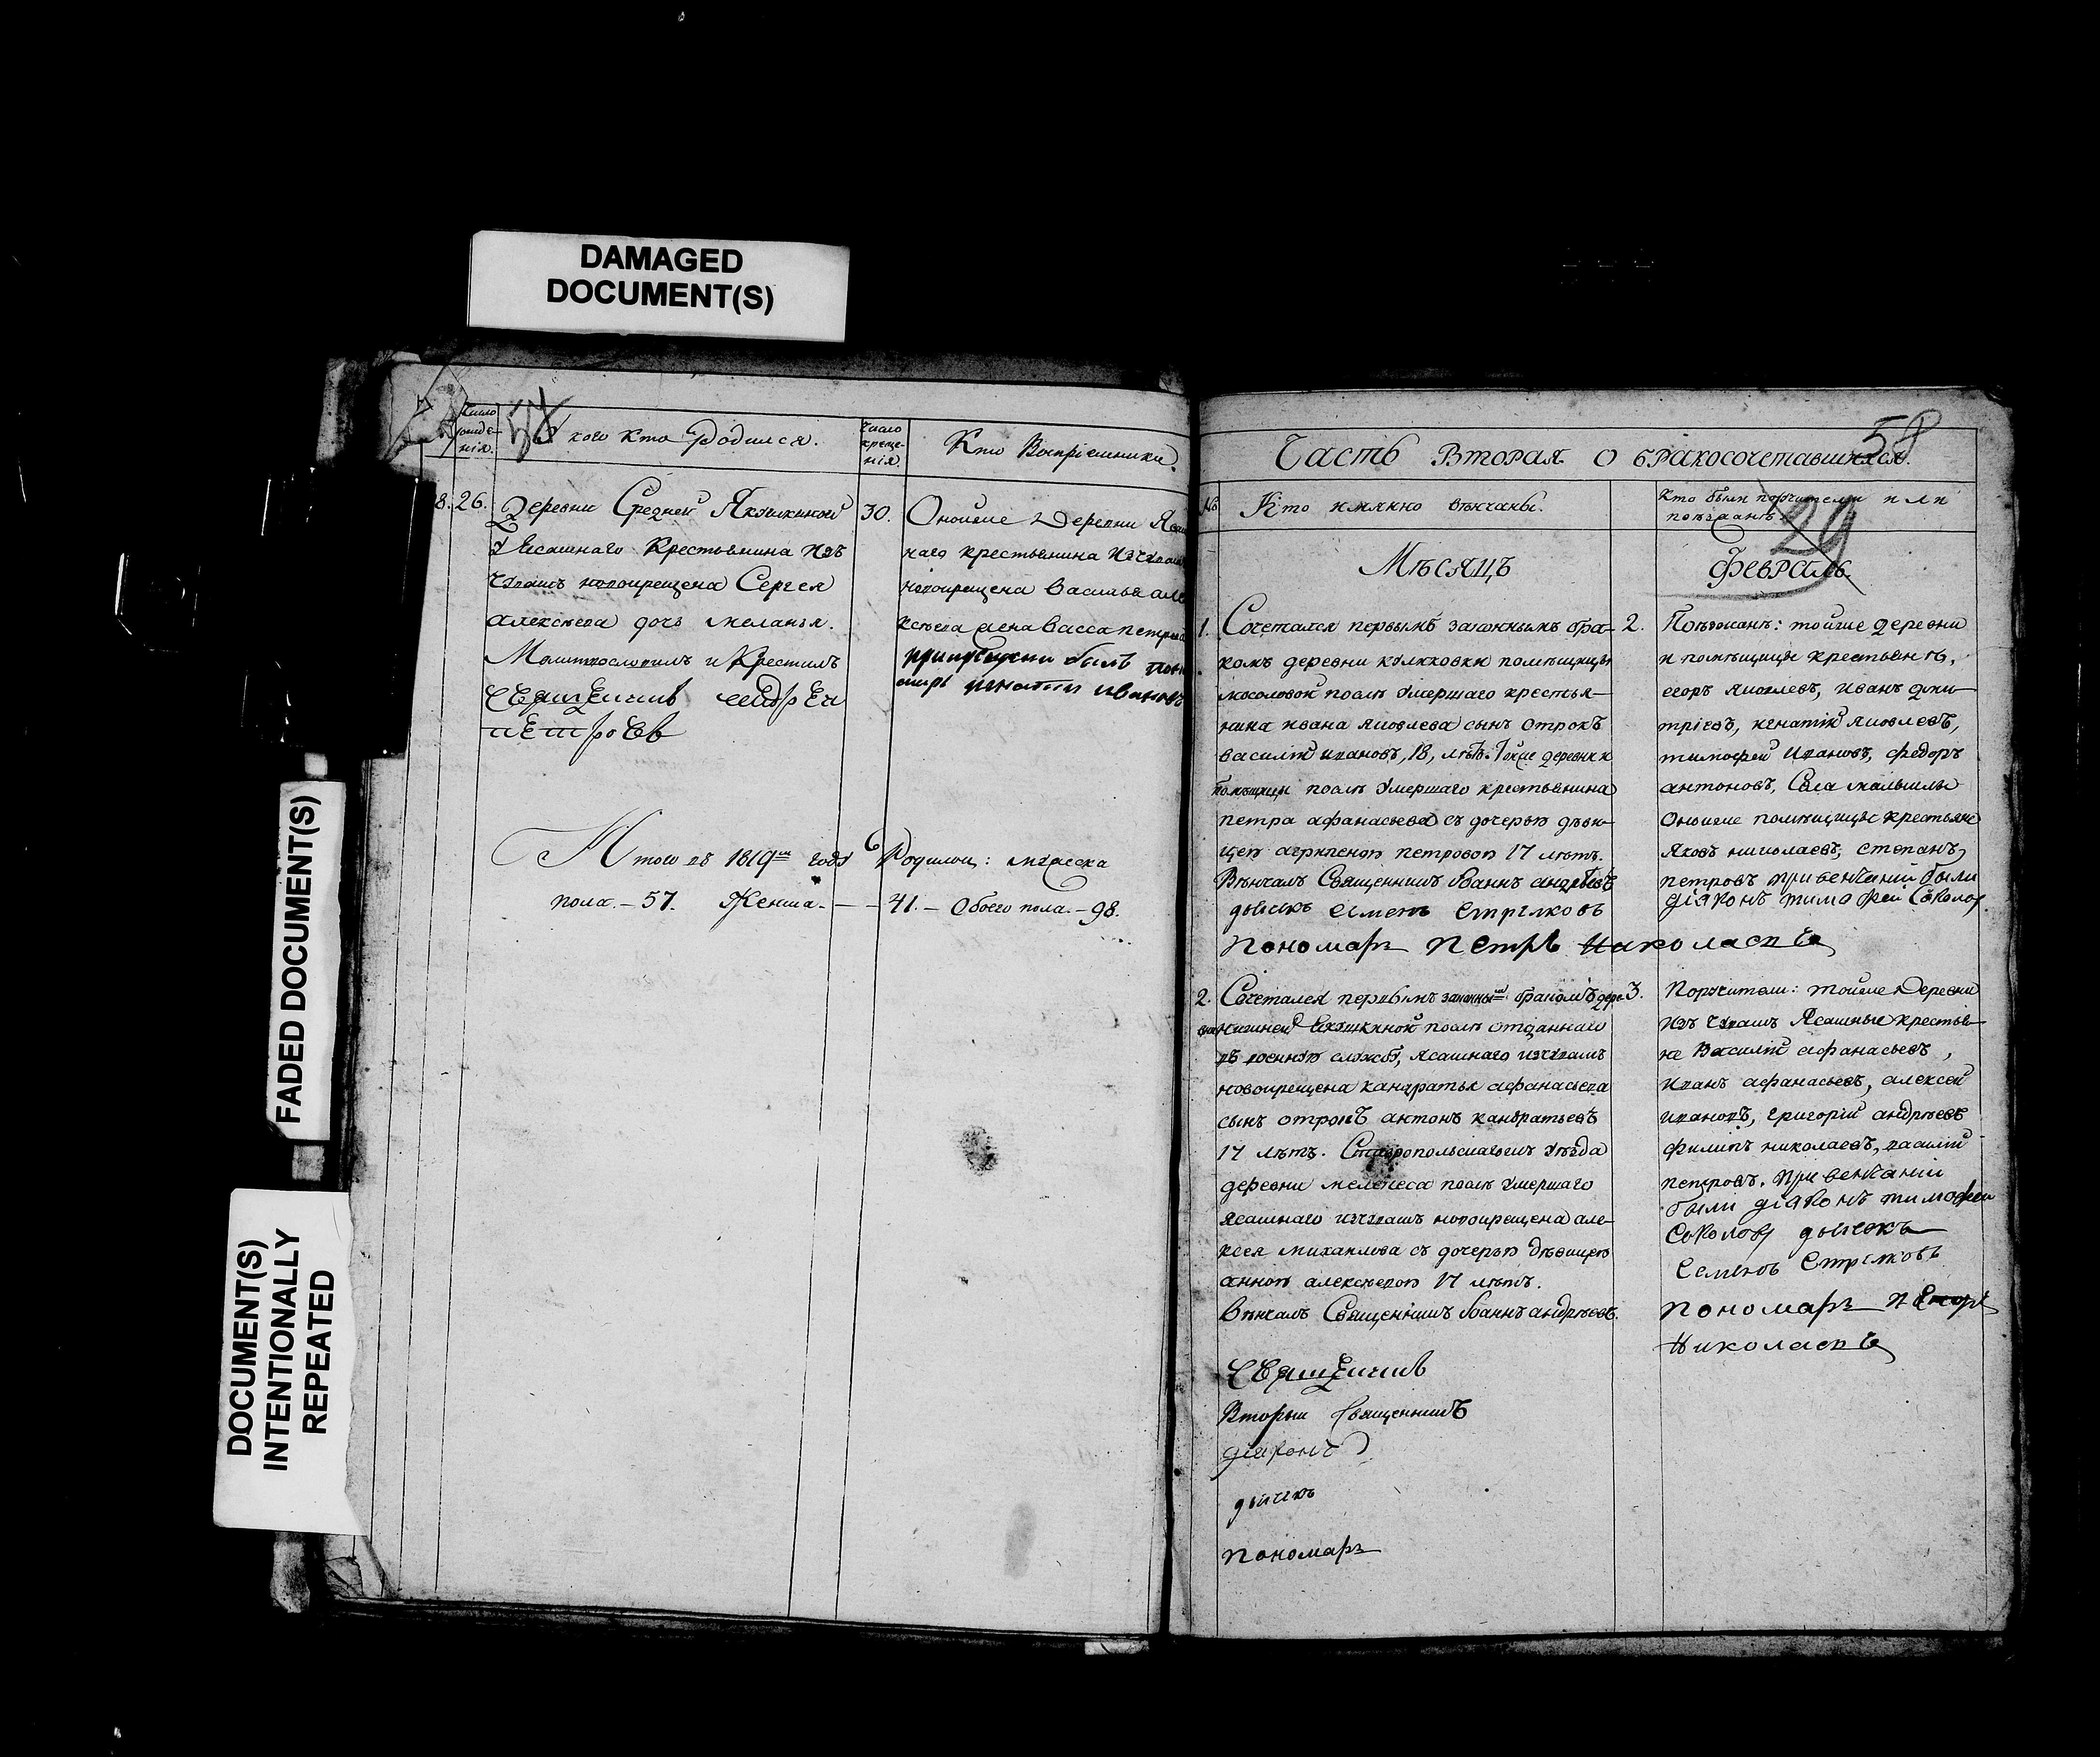 DAMAGED
DOCUMENT(S)
FADED DOCUMENT(S)
DOCUMENT(S)
INTENTIONALLY
REPEATED
Число
рожде-
нія.
У кого кто Родился.
Число
креще-
нія.
Кто Воспріемники.
8. 26. Деревни Средней Якушкиной
Ясашнаго Крестьянина изъ
Чувашъ новокрещена Сергея
алексеева дочь меланья.
Молитвословилъ и Крестилъ
Священникъ Андрей
Петровъ
30. Оной же Деревни
наго крестьянина
новокрещена Василья але
ксѣева жена Васса петрова
при крещении былъ поно
марь игнатий ивановъ
Итого въ 1819м году Родилось: мужеска
пола. – 57. Женска. – – 41. – Обоего пола. – 98.
58
Часть Вторая о бракосочетавшихся.
№ Кто имянно вѣнчаны.
Кто были поручители или
поѣзжанѣ.
29
Мѣсяцъ
Февраль.
1. Сочетался первымъ законнымъ бра-
комъ деревни помѣщицы
послѣ умершаго крестья-
нина ивана яковлева сынъ отрокъ
василій ивановъ, 18, лѣтъ. Тойже деревни и
помѣщицы послѣ умершаго крестьянина
петра афанасьева съ дочерью дѣви-
цею агрипеною петровою 17 лѣтъ.
Вѣнчалъ Священникъ Іоаннъ андрѣевъ
дьячекъ семенъ стрелковъ
пономарь петръ николаевъ
2. Поѣзжанѣ: тойже деревни
и помѣщицы крестьянѣ,
егоръ яковлевъ, иванъ дми-
тріевъ, игнатій яковлевъ,
тимофей ивановъ, федоръ
антоновъ, Села
Оной же помѣщицы крестьяне
яковъ николаевъ, степанъ
петровъ при венчаніи были
діаконъ тимофей Соколов
2. Сочетался первымъ законнымъ бракомъ дере-
вни нижней Якушкиной послѣ отданнаго
въ военную службу, ясашнаго изъ чувашъ
новокрещена кандратья афанасьева
сынъ отрокъ антонъ кандратьевъ
17 лѣтъ. Ставропольскаго уѣзда
деревни мелекеса послѣ умершаго
ясашнаго изъ чувашъ новокрещена але-
ксея михайлова съ дочерью дѣвицею
анною алексѣевою 17 лѣтъ.
Вѣнчалъ Священникъ Іоаннъ андрѣевъ.
3. Поручители: тойже Деревни
изъ Чувашъ Ясашные крестья-
не Василій афанасьевъ,
иванъ афанасьевъ, алексей
ивановъ, григорій андрѣевъ
филипъ николаевъ, василій
петровъ. при венчаніи
были діаконъ тимофей
Соколовъ дьячекъ
Семенъ Стрелковъ
пономарь петръ
Николаевъ
Священникъ
Вторый Священникъ
діаконъ
дьячекъ
пономарь